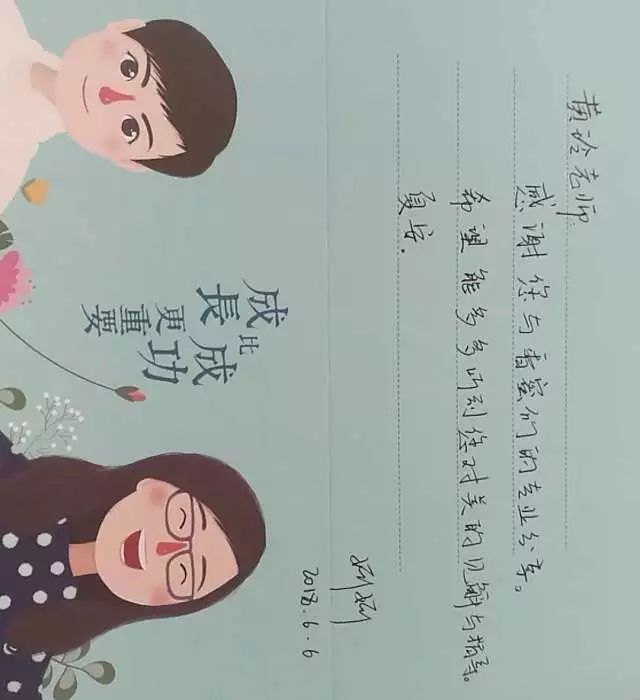 成長
比成功
更重要
黄玲老师:
感谢您与香蜜们的专业分享。
希望能多多听到您对美的见解与指导。
夏安.
2018.6.6